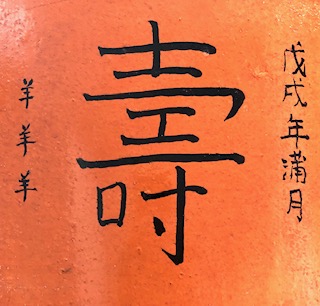 戊戌年满月
壽
羊羊羊